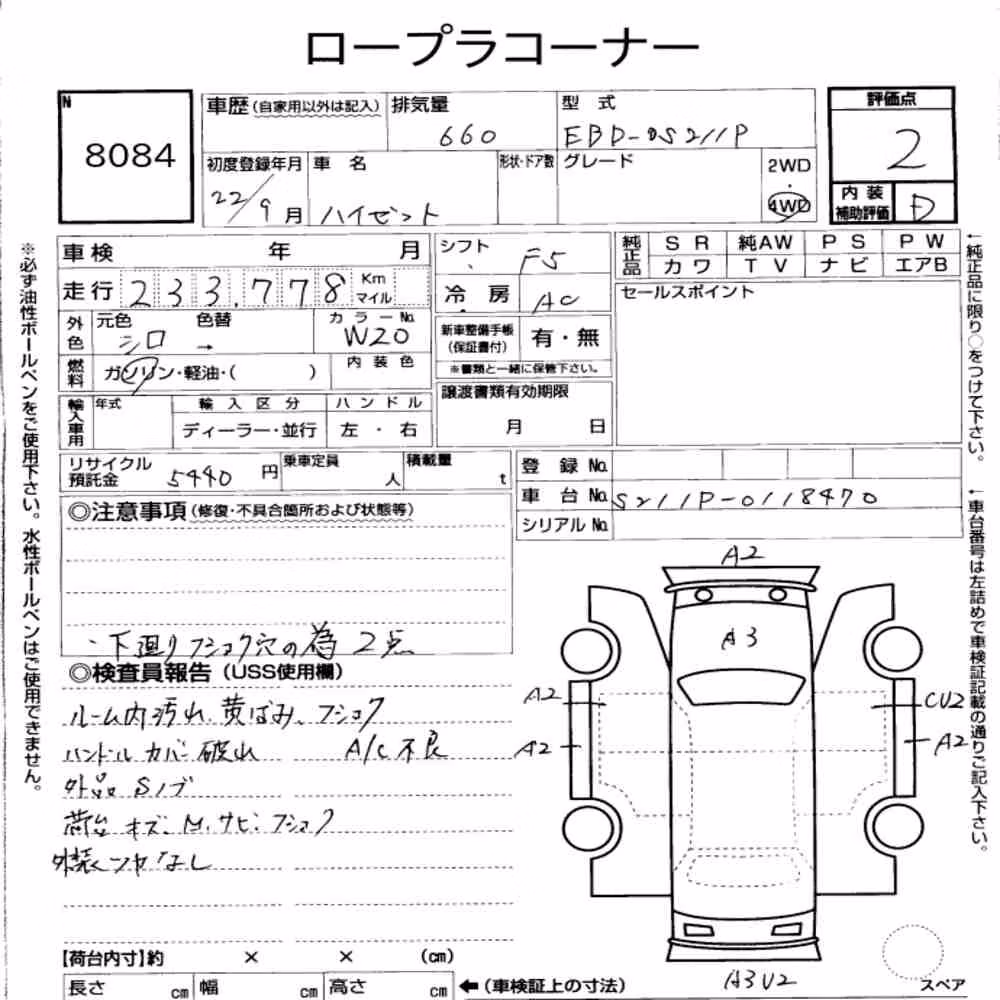 ロープラコーナー
N
8084
車歴 (自家用以外は記入)
排気量
660
型 式
EBD-S211P
評価点
2
初度登録年月
22/9 月
車 名
ハイゼット
形状・ドア数
グレード
2WD
・
4WD
内装
補助評価
D
※必ず油性ボールペンをご使用下さい。水性ボールペンはご使用できません。
車検 年 月
走行 233,778 Km
マイル
外色
元色 シロ
色替 →
カラーNo. W20
燃料
ガソリン・軽油・( )
内装色
輸入車用
年式
輸 入 区 分
ディーラー・並行
ハ ン ド ル
左 ・ 右
シフト F5
冷 房 AC
新車整備手帳
(保証書付)
有・無
※書類と一緒に保管下さい。
譲渡書類有効期限
月 日
純正品
S R 純AW P S P W
カ ワ T V ナ ビ エアB
セールスポイント
←純正品に限り○をつけて下さい。
リサイクル
預託金 5440 円
乗車定員
人
積載量
t
登 録 No.
車 台 No. S211P-0118470
シリアル No.
←車台番号は左詰めで車検証記載の通りご記入下さい。
◎注意事項 (修復・不具合箇所および状態等)
・下廻りフショク穴の為 2点
◎検査員報告 (USS使用欄)
ルーム内汚れ、黄ばみ、フショク
ハンドルカバー破れ A/C不良
外品Sノブ
荷台 キズ、M、サビ、フショク
A2
A3
A2
CU2
A2
A2
A3U2
スペア
【荷台内寸】約 × × (cm)
長さ cm 幅 cm 高さ cm
←(車検証上の寸法)